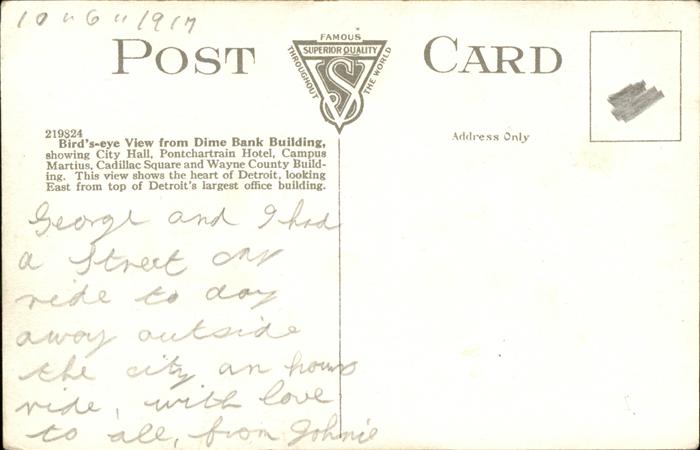 10 " 6 " 1917
POST CARD
FAMOUS
SUPERIOR QUALITY
THROUGHOUT THE WORLD
S
Address Only
219824
Bird's-eye View from Dime Bank Building,
showing City Hall, Pontchartrain Hotel, Campus
Martius, Cadillac Square and Wayne County Build-
ing. This view shows the heart of Detroit, looking
East from top of Detroit's largest office building.
George and I had
a Street car
ride to day
away outside
the city an hours
ride, with love
to all, from Johnie